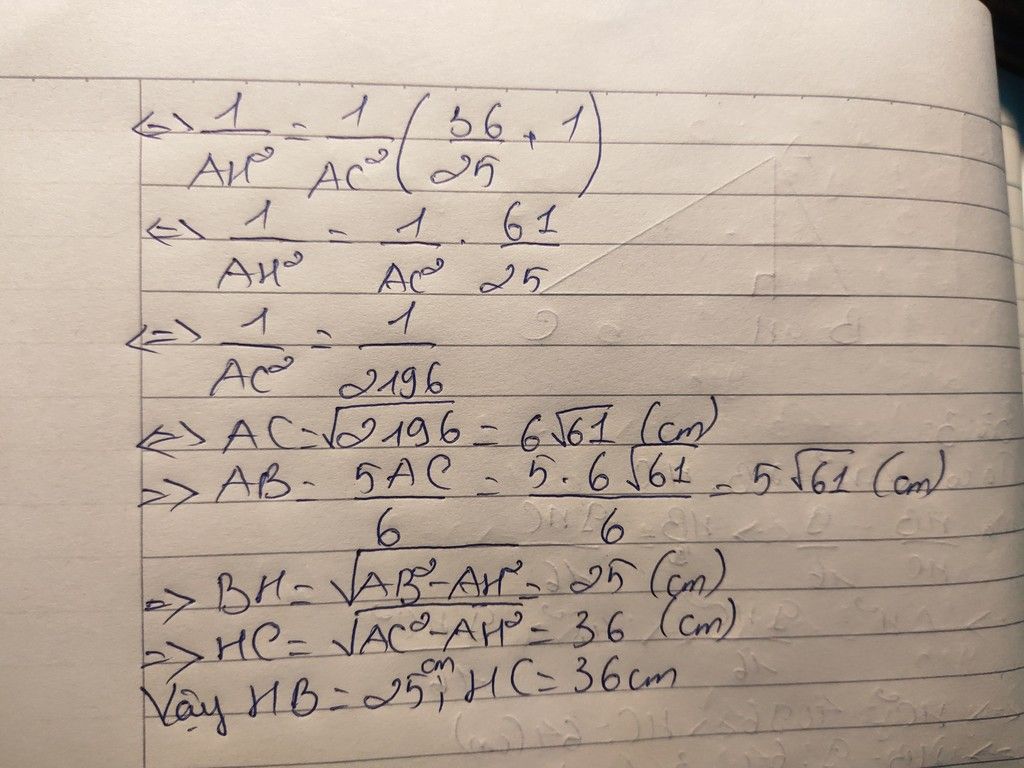 <=> 1/AH² = 1/AC² (36/25 + 1)
<=> 1/AH² = 1/AC² . 61/25
<=> 1/AC² = 1/2196
<=> AC = √2196 = 6√61 (cm)
=> AB = 5AC/6 = 5.6√61/6 = 5√61 (cm)
=> BH = √AB²-AH² = 25 (cm)
=> HC = √AC²-AH² = 36 (cm)
Vậy HB = 25cm; HC = 36cm